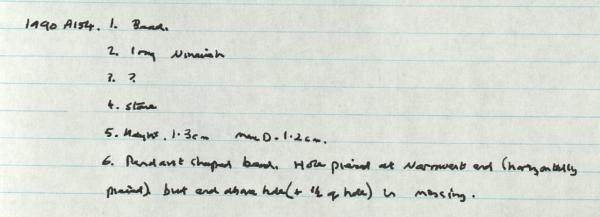 1990 A154. 1. Bead.
2. Iraq Nineveh
3. ?
4. stone
5. Height. 1.3cm max D. 1.2cm.
6. Pendant shaped bead. Hole pierced at narrowest end (horizontally
pierced) but end above hole (+ ½ of hole) is missing.